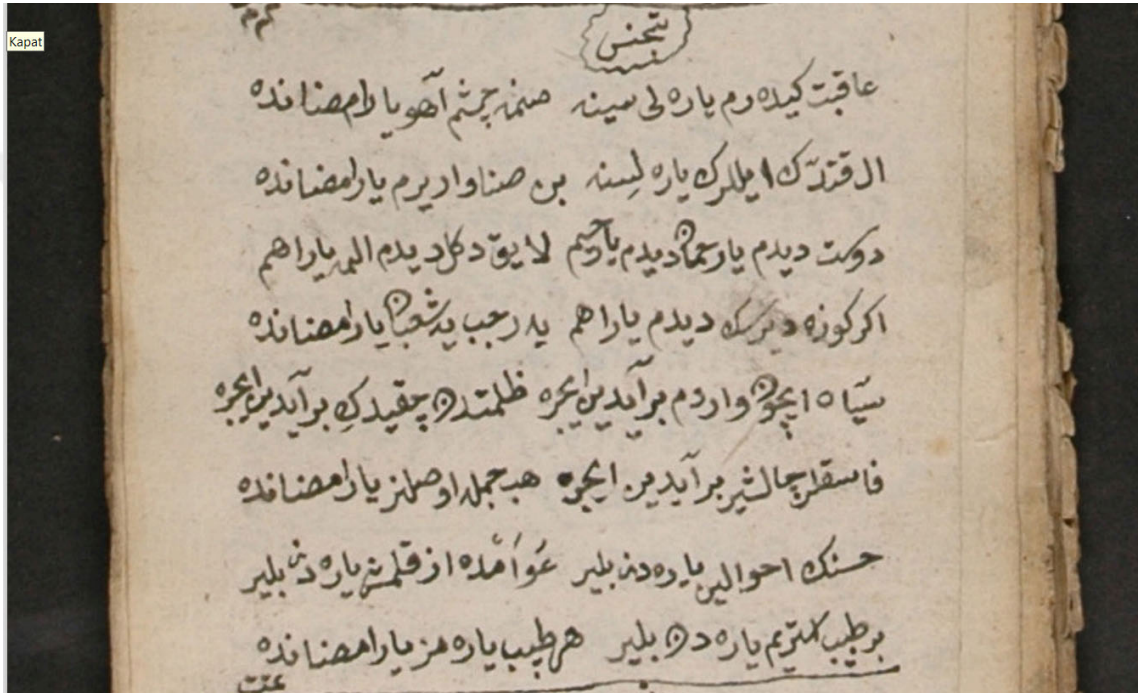 Kapat
تجنس
عاقبت كیده رم یاره لی سینه صنمه چشم آهو یار رامضانده
ال قتدڭ ایللرڭ یاره لسنه بن صنا واریرم یار رامضانده
دوست دیدم یار رحمان دیدم یا رحیم لایق دكل دیدم المه یاراهم
اكر كوزه دیرسك دیدم یاراهم یه رجب یه شعبان یار رامضانده
سیاه ایچون واردم بر آیدین ایچره ظلمتدن چقیدك بر آیدین ایچره
بر آیدین ایچره هب جمله اوصلنز یار رامضانده
حسنڭ احوالین یاره دن بلیر از قلمش یاره دن بلیر
بر طبیب یاره دن بلیر هر طبیب یاره مز یار رامضانده
تمت